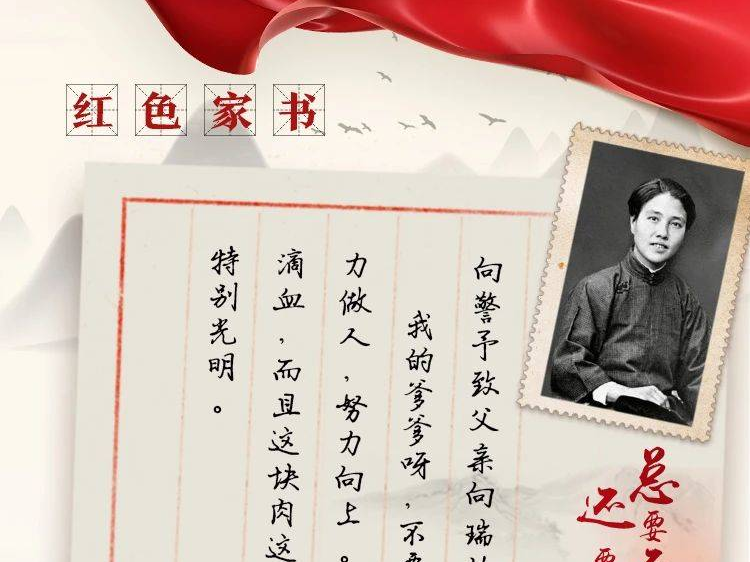 红色家书
向警予致父亲向瑞
我的爹爹呀，不要
力做人，努力向上。
滴血，而且这块肉这
特别光明。
总要
还要